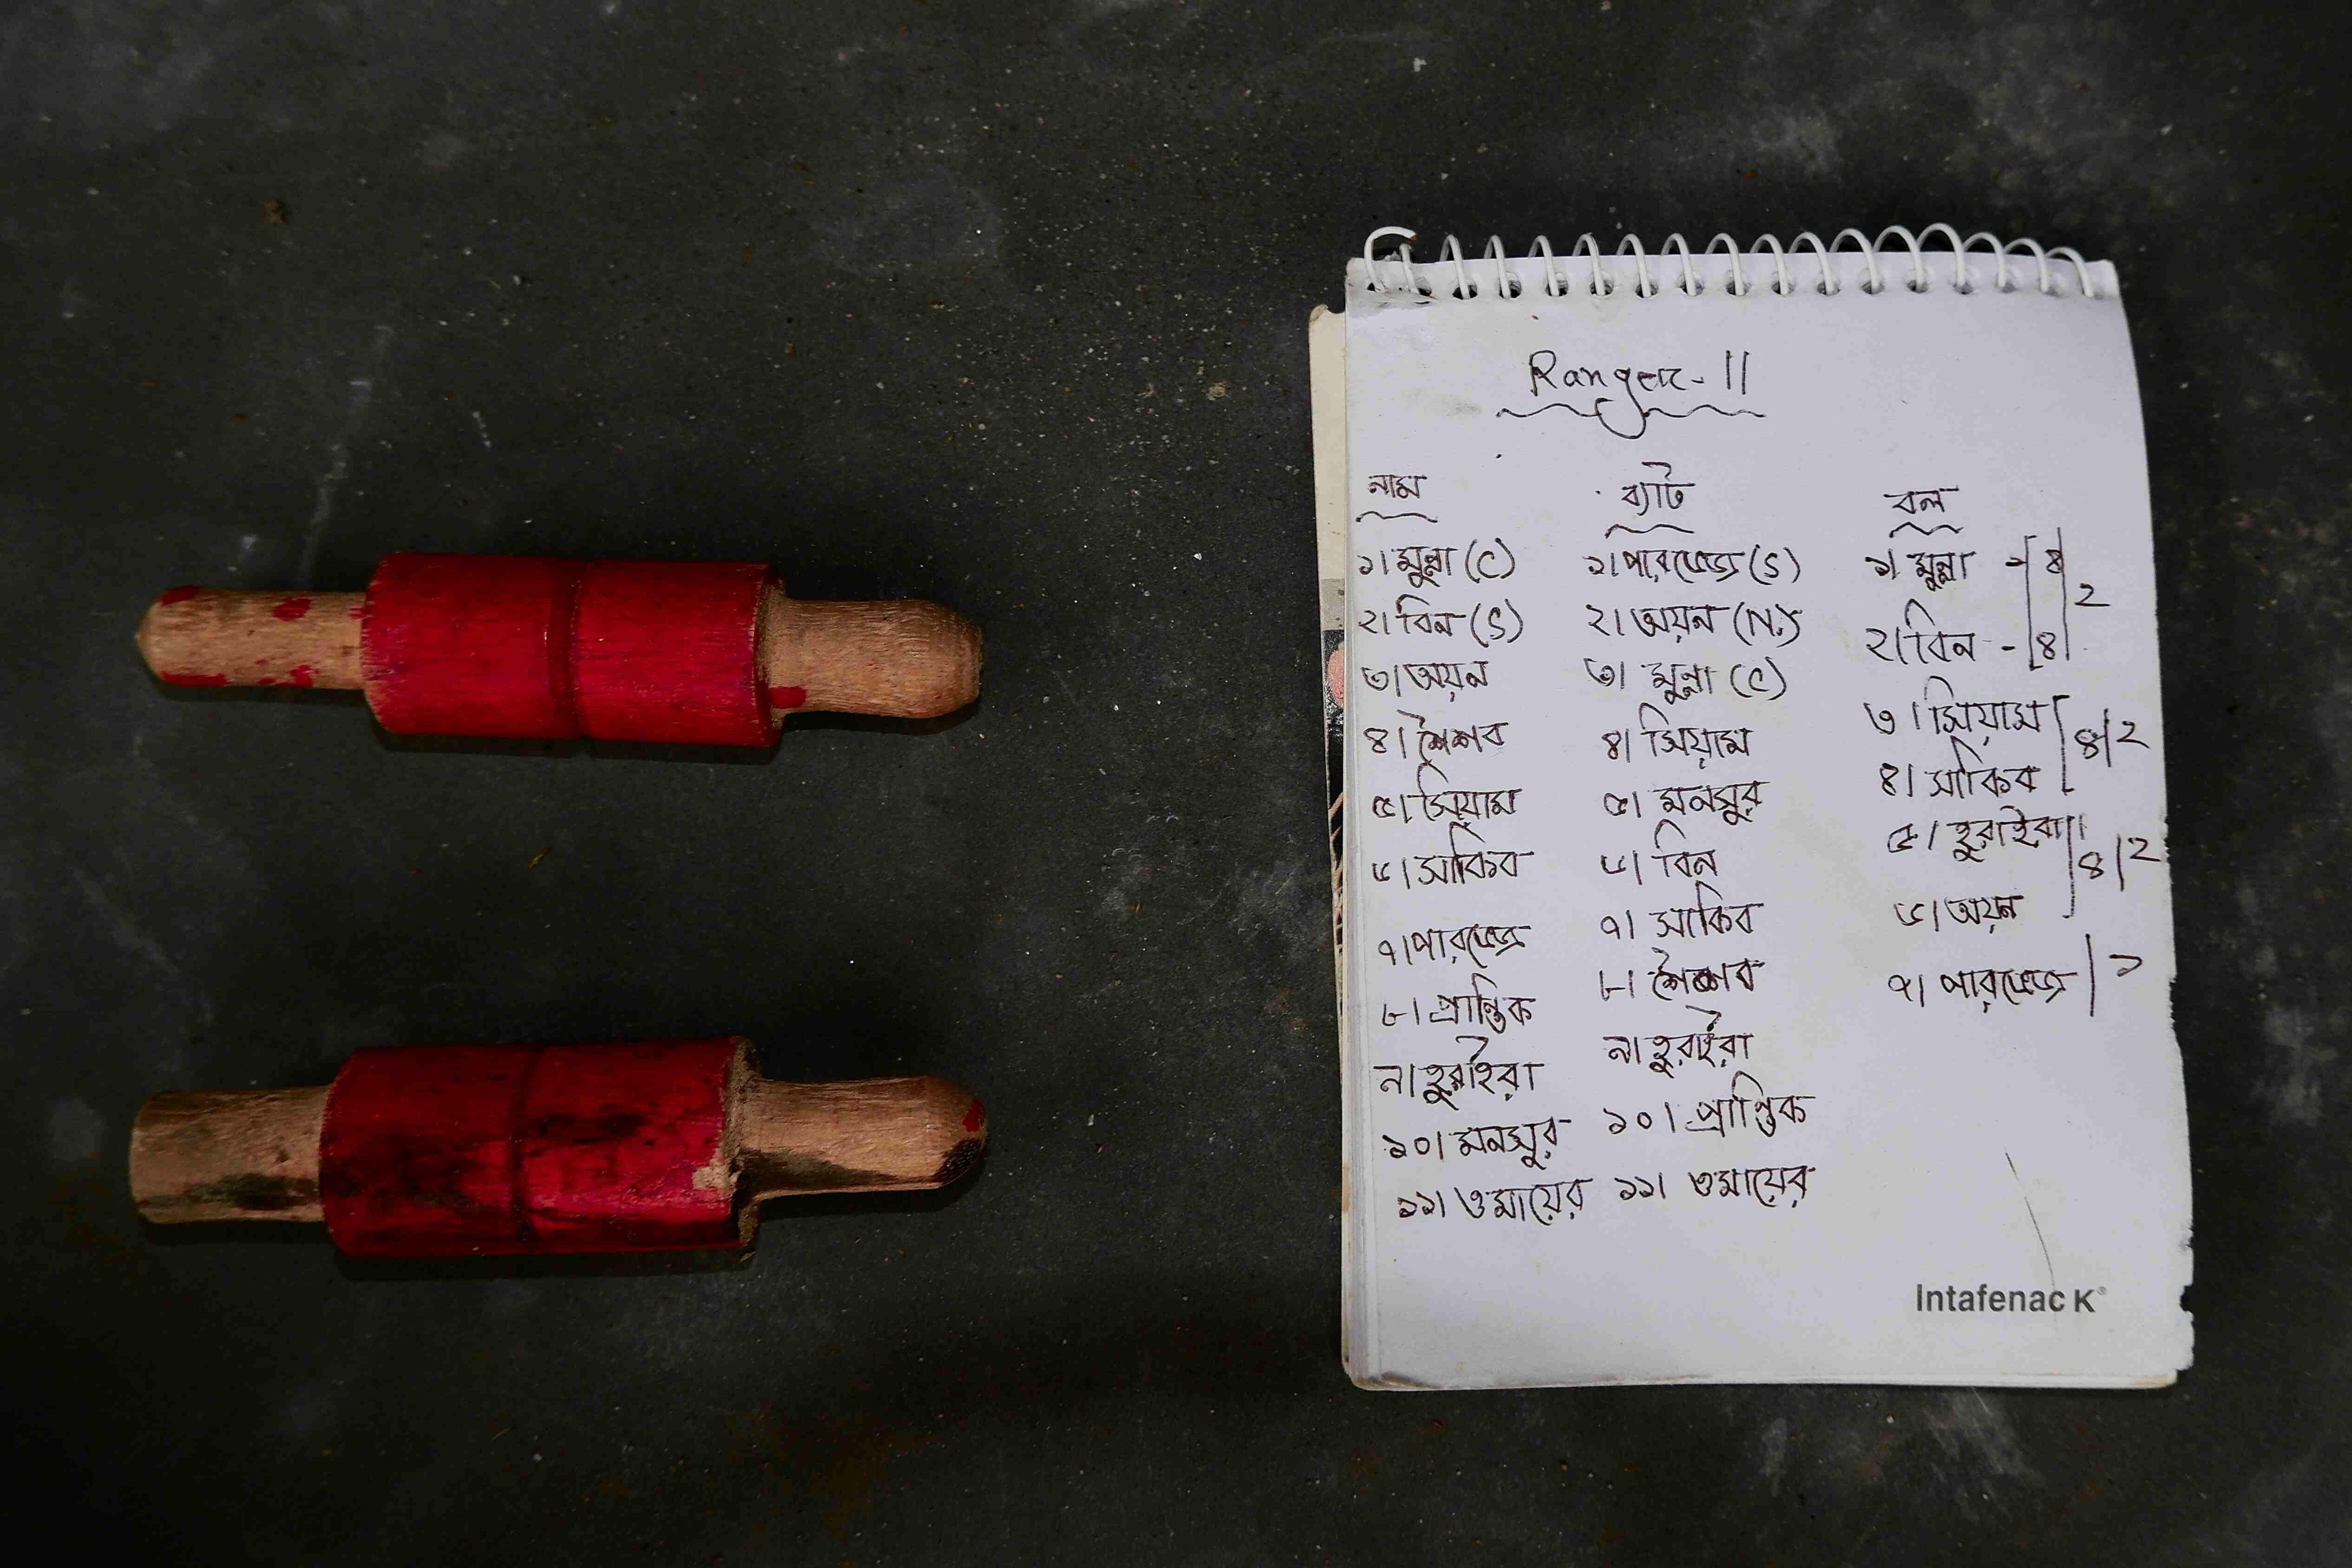 Ranger-11
নাম ব্যাট বল
১। মুন্না (C) ১। পারভেজ (S) ১। মুন্না - 8
2
২। বিন (S) ২। অয়ন (N.S) ২। বিন - 8
৩। অয়ন ৩। মুন্না (C) ৩। সিয়াম
8 2
৪। শৈশব ৪। সিয়াম ৪। সাকিব
৫। সিয়াম ৫। মনসুর ৫। হুরাইরা
8 2
৬। সাকিব ৬। বিন ৬। অয়ন
৭। পারভেজ ৭। সাকিব ৭। পারভেজ ১
৮। প্রান্তিক ৮। শৈশব
৯। হুরাইরা ৯। হুরাইরা
১০। মনসুর ১০। প্রান্তিক
১১। ওমায়ের ১১। ওমায়ের
Intafenac K®